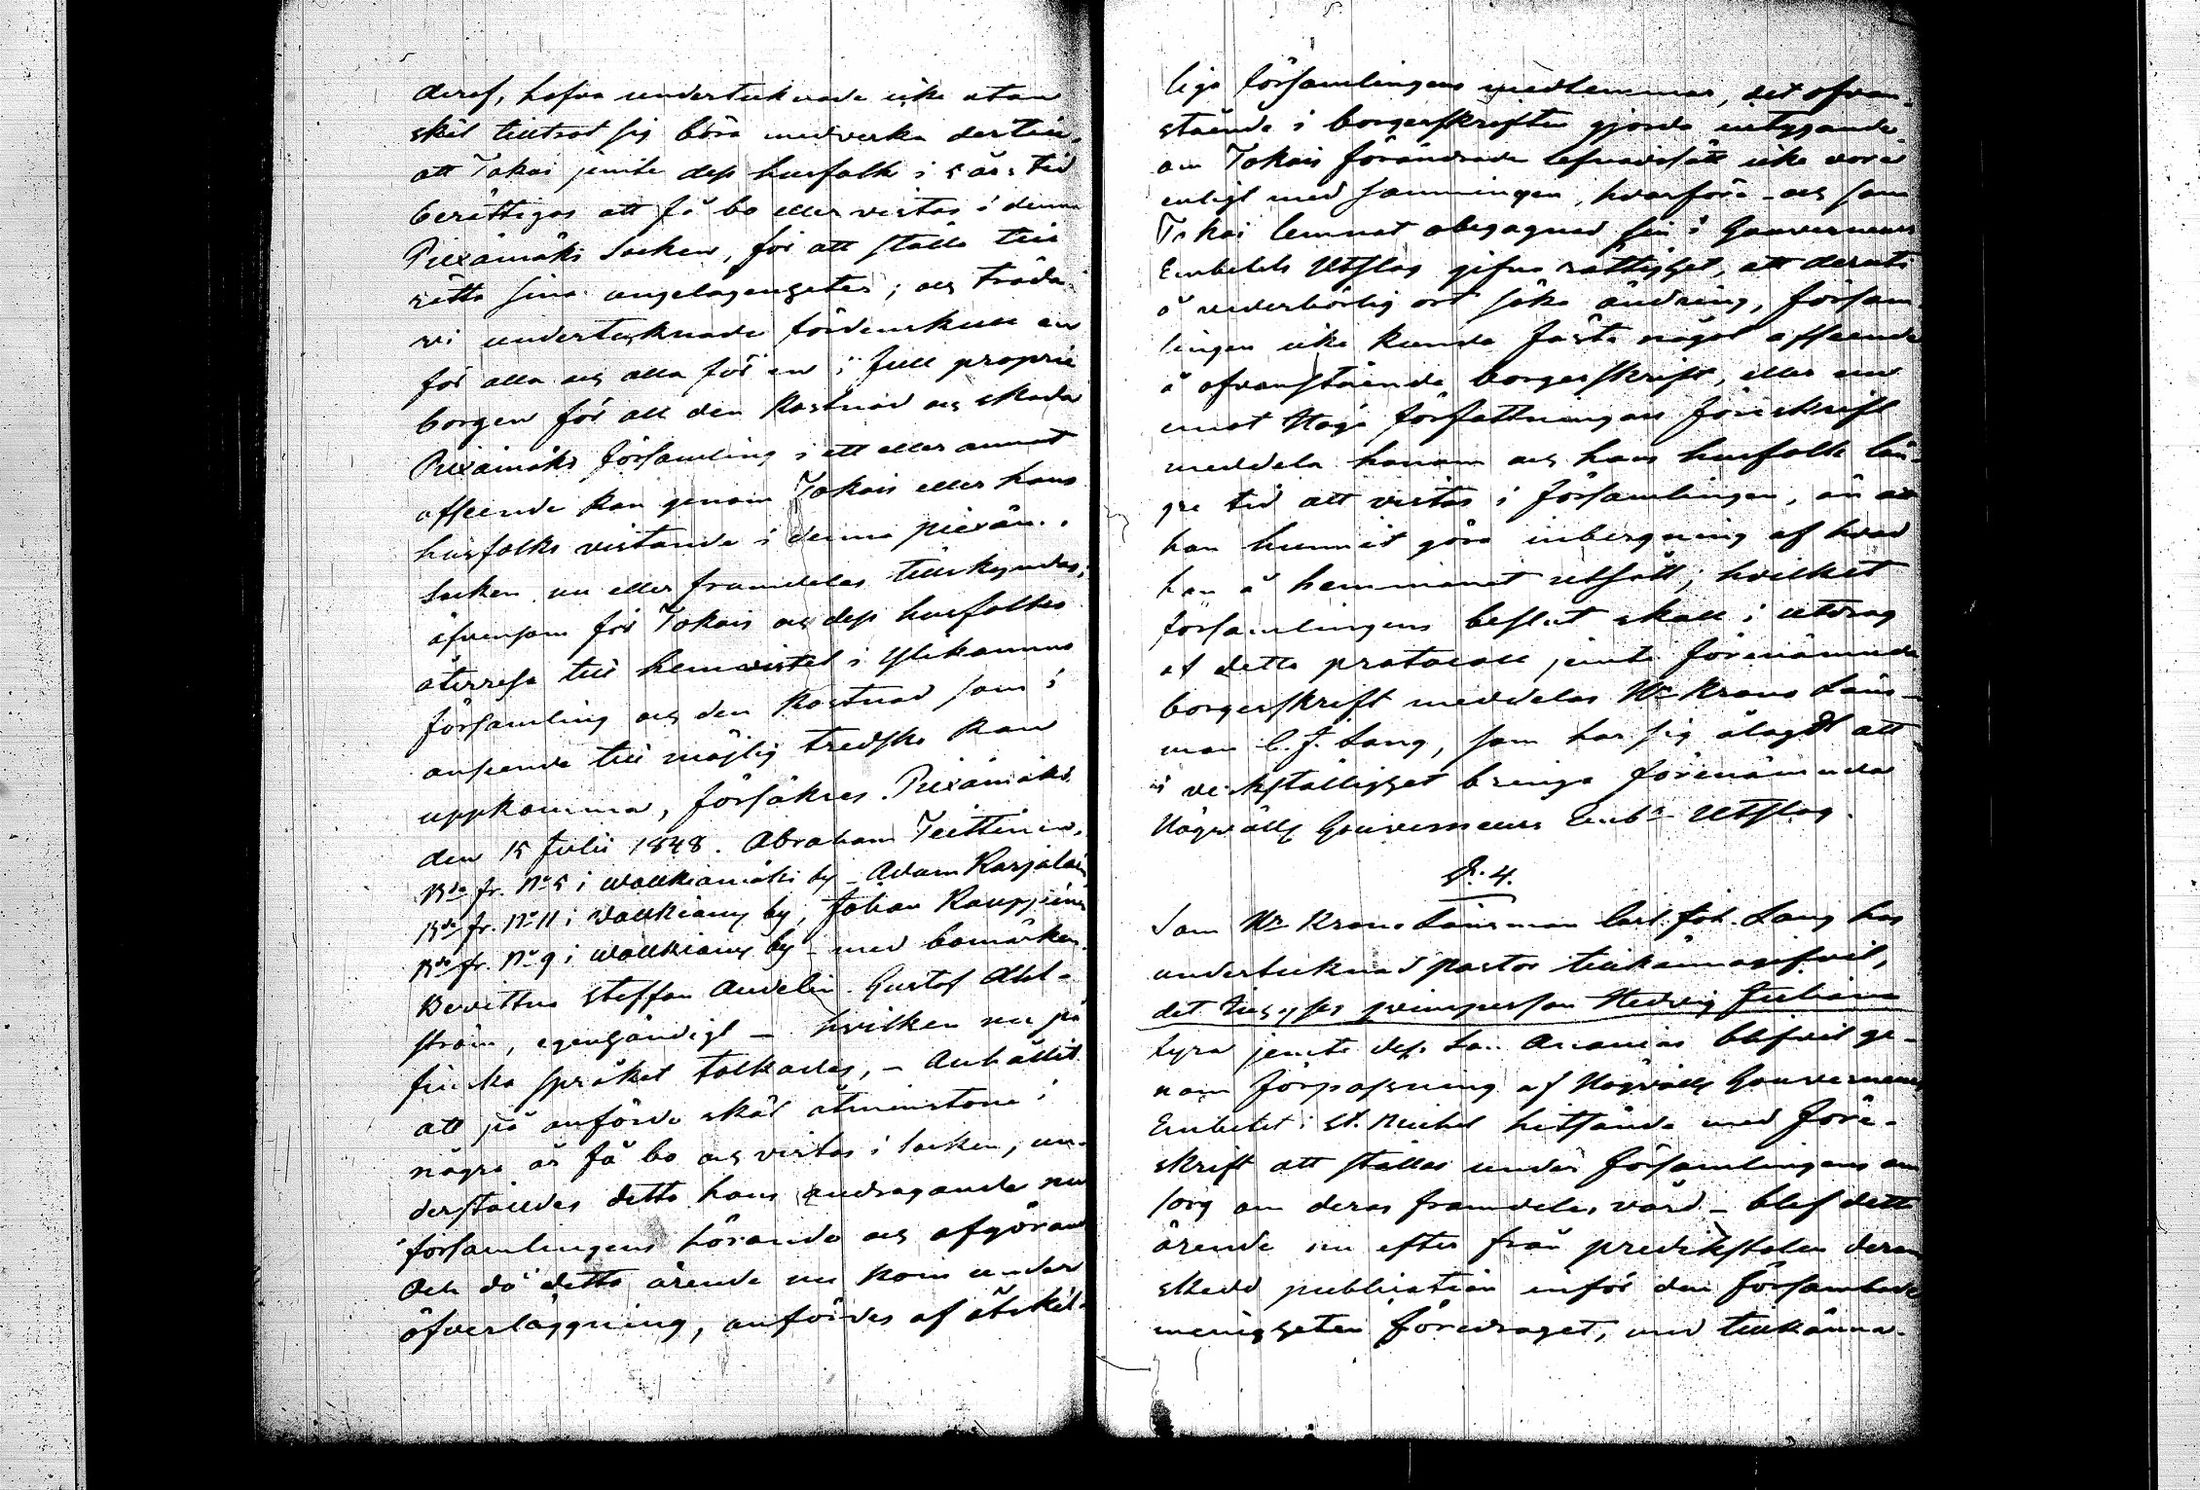 deraf, hafva undertecknade icke utan
skäl tilltrot sig böra medverka dertill,
att Tokoi jemte dess husfolk i 5 års tid
berättigas att få bo eller vistas i denna
Piexämäki Socken, för att ställa till
rätta sina angelägenheter; och träda
vi undertecknade fördenskull en
för alla och alla för en i full proprie
borgen för all den kostnad och skada
Piexämäki församling i ett eller annat
afseende kan genom Tokois eller hans
husfolks vistande i denna piexäm.
Socken nu eller framdeles tillskyndas;
äfvensom för Tokois och dess husfolks
återresa till hemvistet i Ylikannus
församling och den kostnad som i
anseende till möjlig tredska kan
uppkomma, försäkres. Piexämäki
den 15 Julii 1848. Abraham Teittinen,
Bde fr. No 5 i Wallkiamäki by - Adam Karjalain
Bde fr. No 11 i Wallkiamy by, Johan Kauppinen
Bde fr. No 9 i Wallkiamy by - med bomärken.
Bevittna Steffan Audelin. Gustaf Ahl-
ström, egenhändigt - hvilken nu på
finska språket tolkades, - Anhållit
att på anförde skäl åtminstone i
några år få bo och vistas i Socken, un-
derställdes detta hans andragande nu
församlingens hörande och afgörand
Och då detta ärende nu kom under
öfverläggning, anfördes af åtskil-
lige församlingens medlemmar, det ofvan-
stående i borgesskriften gjorda intygande
om Tokois förändrade lefnadssätt icke vora
enligt med sanningen, hvarföre - och som
Tokoi lemnat obegagnad sin i Gouverneurs
Embetets Utslag gifna rättighet, att deruti
å vederbörlig ort söka ändring, försam-
lingen icke kunde fästa något afseende
å ofvanstående borgesskrift, eller em
emot Höga författningars föreskrift
meddela honom och hans husfolk län-
gre tid att vistas i församlingen, än at
han hunnit göra inbergning af hvad
han å hemmanet utsått; hvilket
församlingens beslut skall i utdrag
af detta protocoll jemte förenämnda
borgesskrift meddelas Hr Krono Läns-
man C. J. Lang, som har sig ålagdt att
i verkställighet bringa förenämnda
Högvällg Gouverneurs Emb:s Utslag.
§. 4.
Som Hr Krono Länsman Carl Joh. Lang has
undertecknad pastor tillkännagifvit,
det qvinsperson Hedvig Juliana
Lyra jemte dess Son Ananias blifvit ge-
nom förpassning af Högvällg Gouverneurs
Embetet i St. Michel hitsände med före-
skrift att ställas under församlingens om
sorg om deras framdeles vård - blef dett
ärende nu efter från predikstolen derom
skedd publication inför den församlade
menigheten föredraget, med tillkänna-